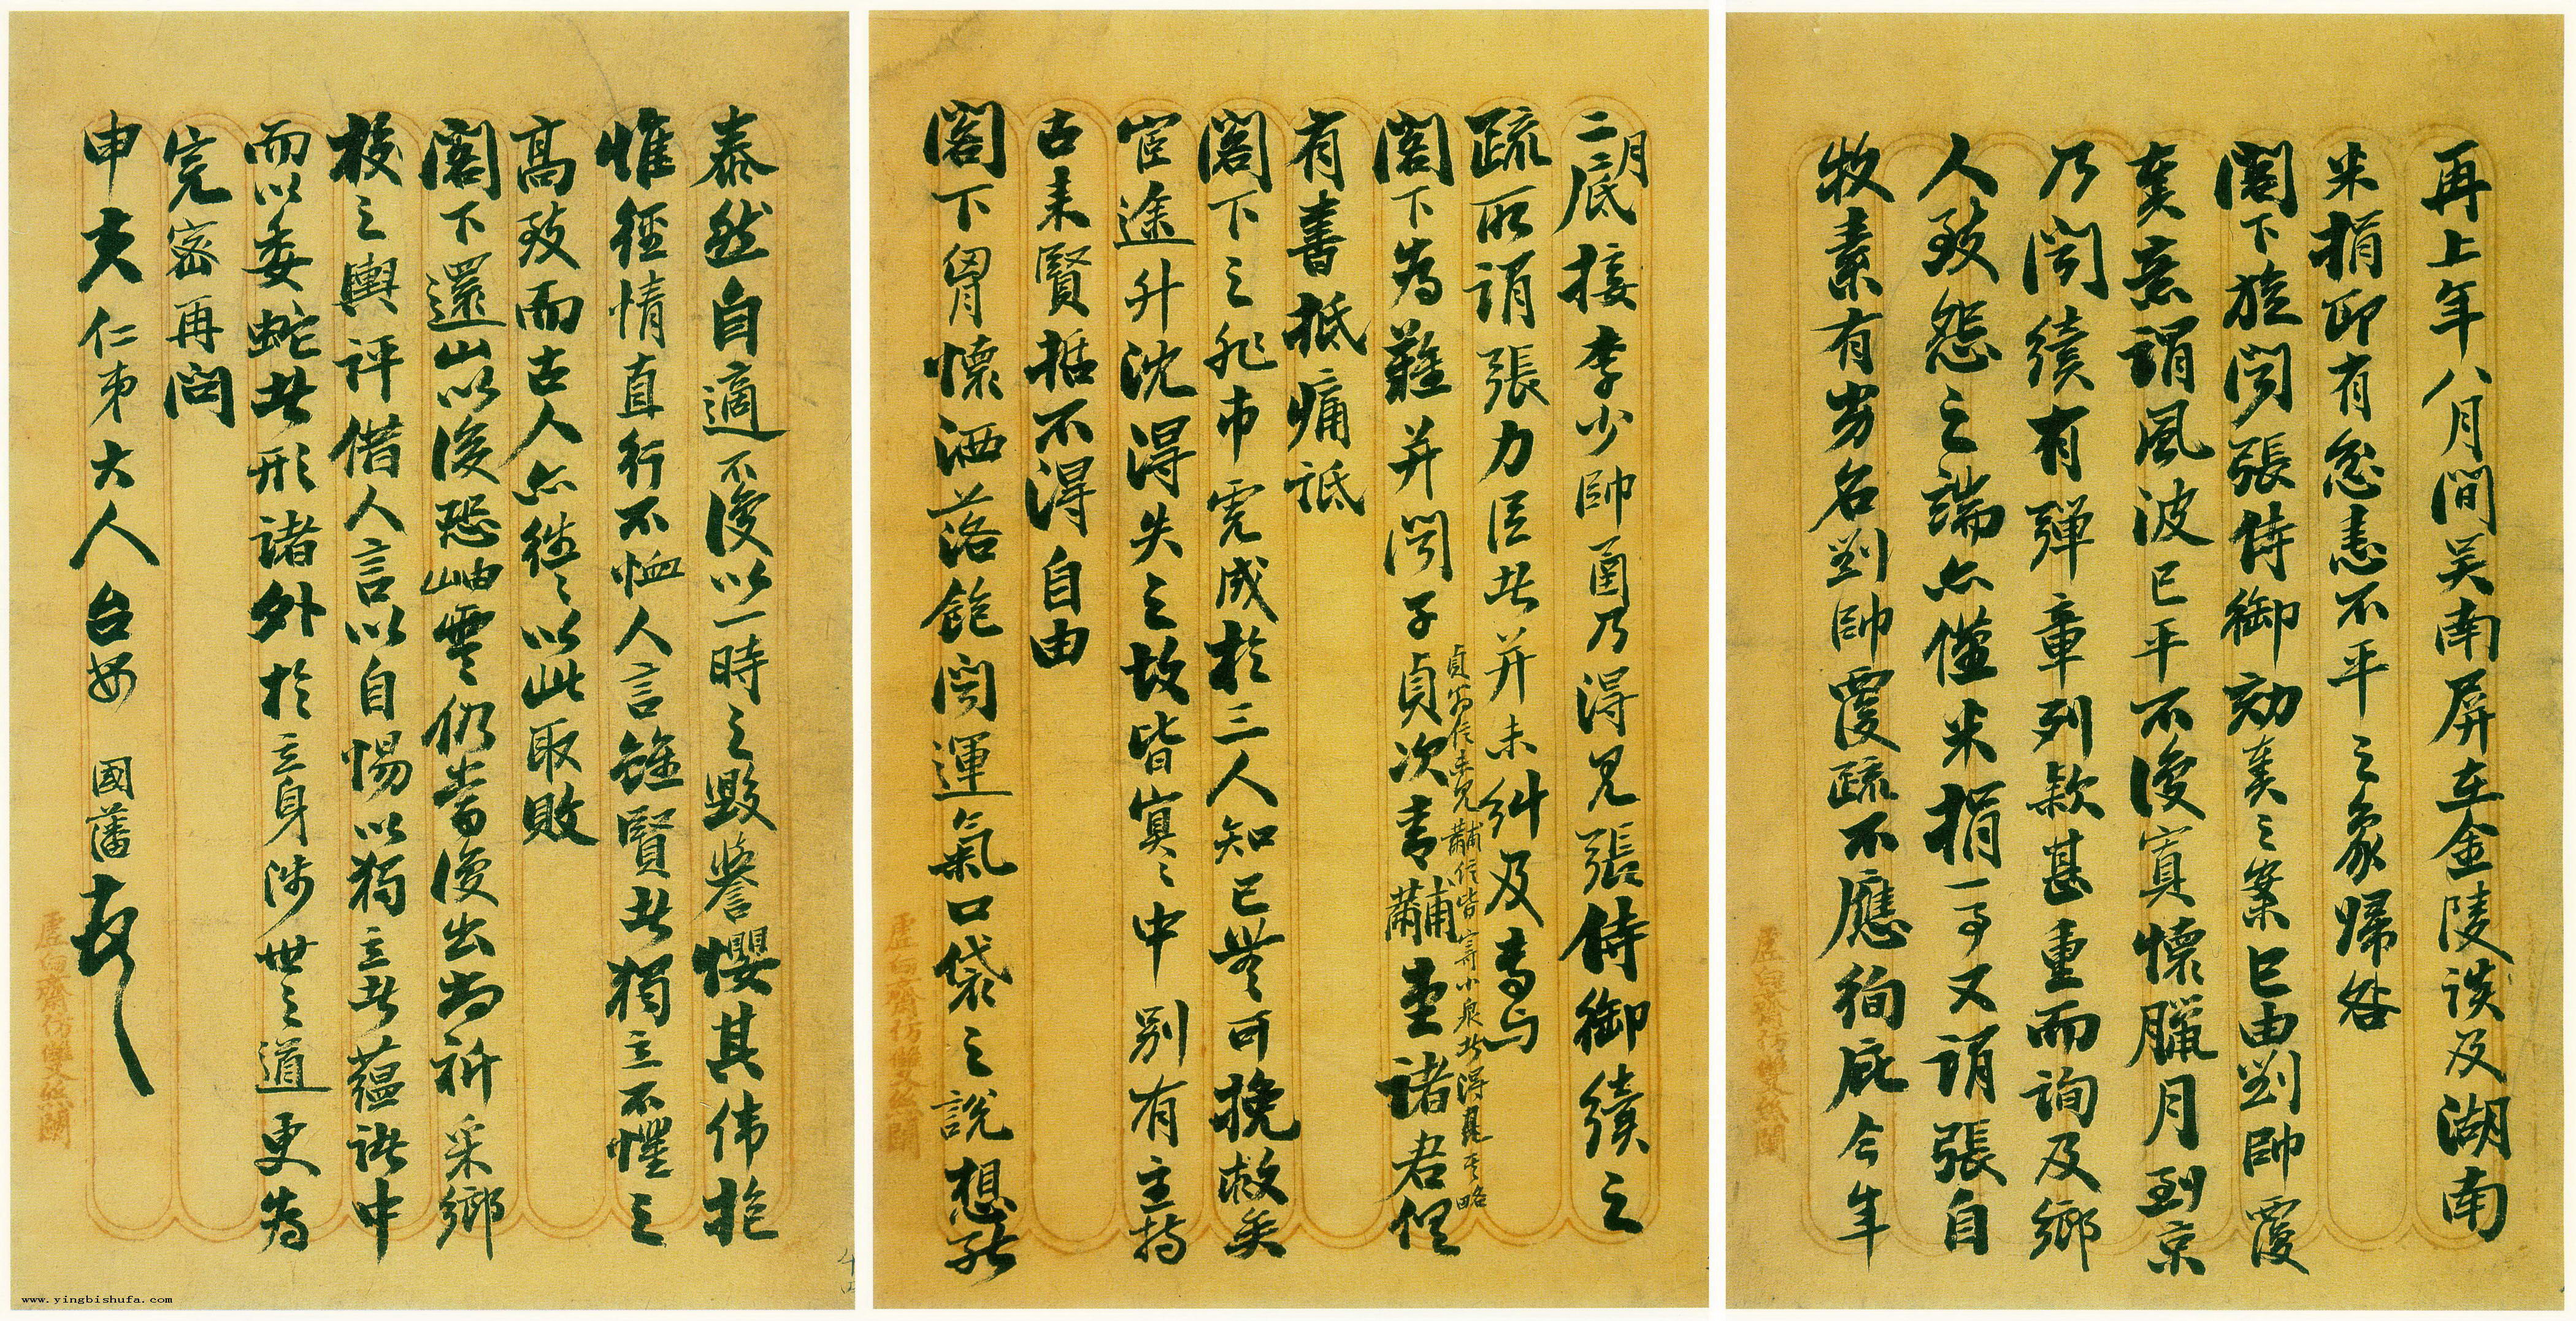 再上年八月間吴南屏在金陵談及湖南
米捐即有忿恚不平之象歸咎
閣下旋閱張侍御劾奏之案已由劉帥覆
奏意謂風波已平不復寘懷臘月到京
乃閱續有彈章列款甚重而詢及鄉
人致怨之端亦僅米捐一事又謂張自
牧素有勞名劉帥覆疏不應徇庇今年
二月底接李少帥函乃得見張侍御續之
疏所謂張力臣者并未糾及專与
閣下為難并閱子貞次青黼堂諸君俱
貞翁信未見黼信皆寄小泉者得見其略
有書抵痛詆
閣下之飛市虎成於三人知已無可挽救矣
宦途升沈得失之故皆冥冥中別有主持
古来賢哲不得自由
閣下胷懷洒落飽閱運氣口袋之說想能
泰然自適不復以一時之毀譽攖其偉抱
惟徑情直行不恤人言雖賢者獨立不懼之
高致而古人亦往往以此取敗
閣下還山以後恐岫雲仍當復出尚祈采鄉
校之輿評借人言以自惕以獨立者蘊諸中
而以委蛇者形諸外於立身涉世之道更為
完密再問
申夫仁弟大人台安 國藩頓
虛白齋仿雙絲闌
虛白齋仿雙絲闌
虛白齋仿雙絲闌
www.yingbishufa.com